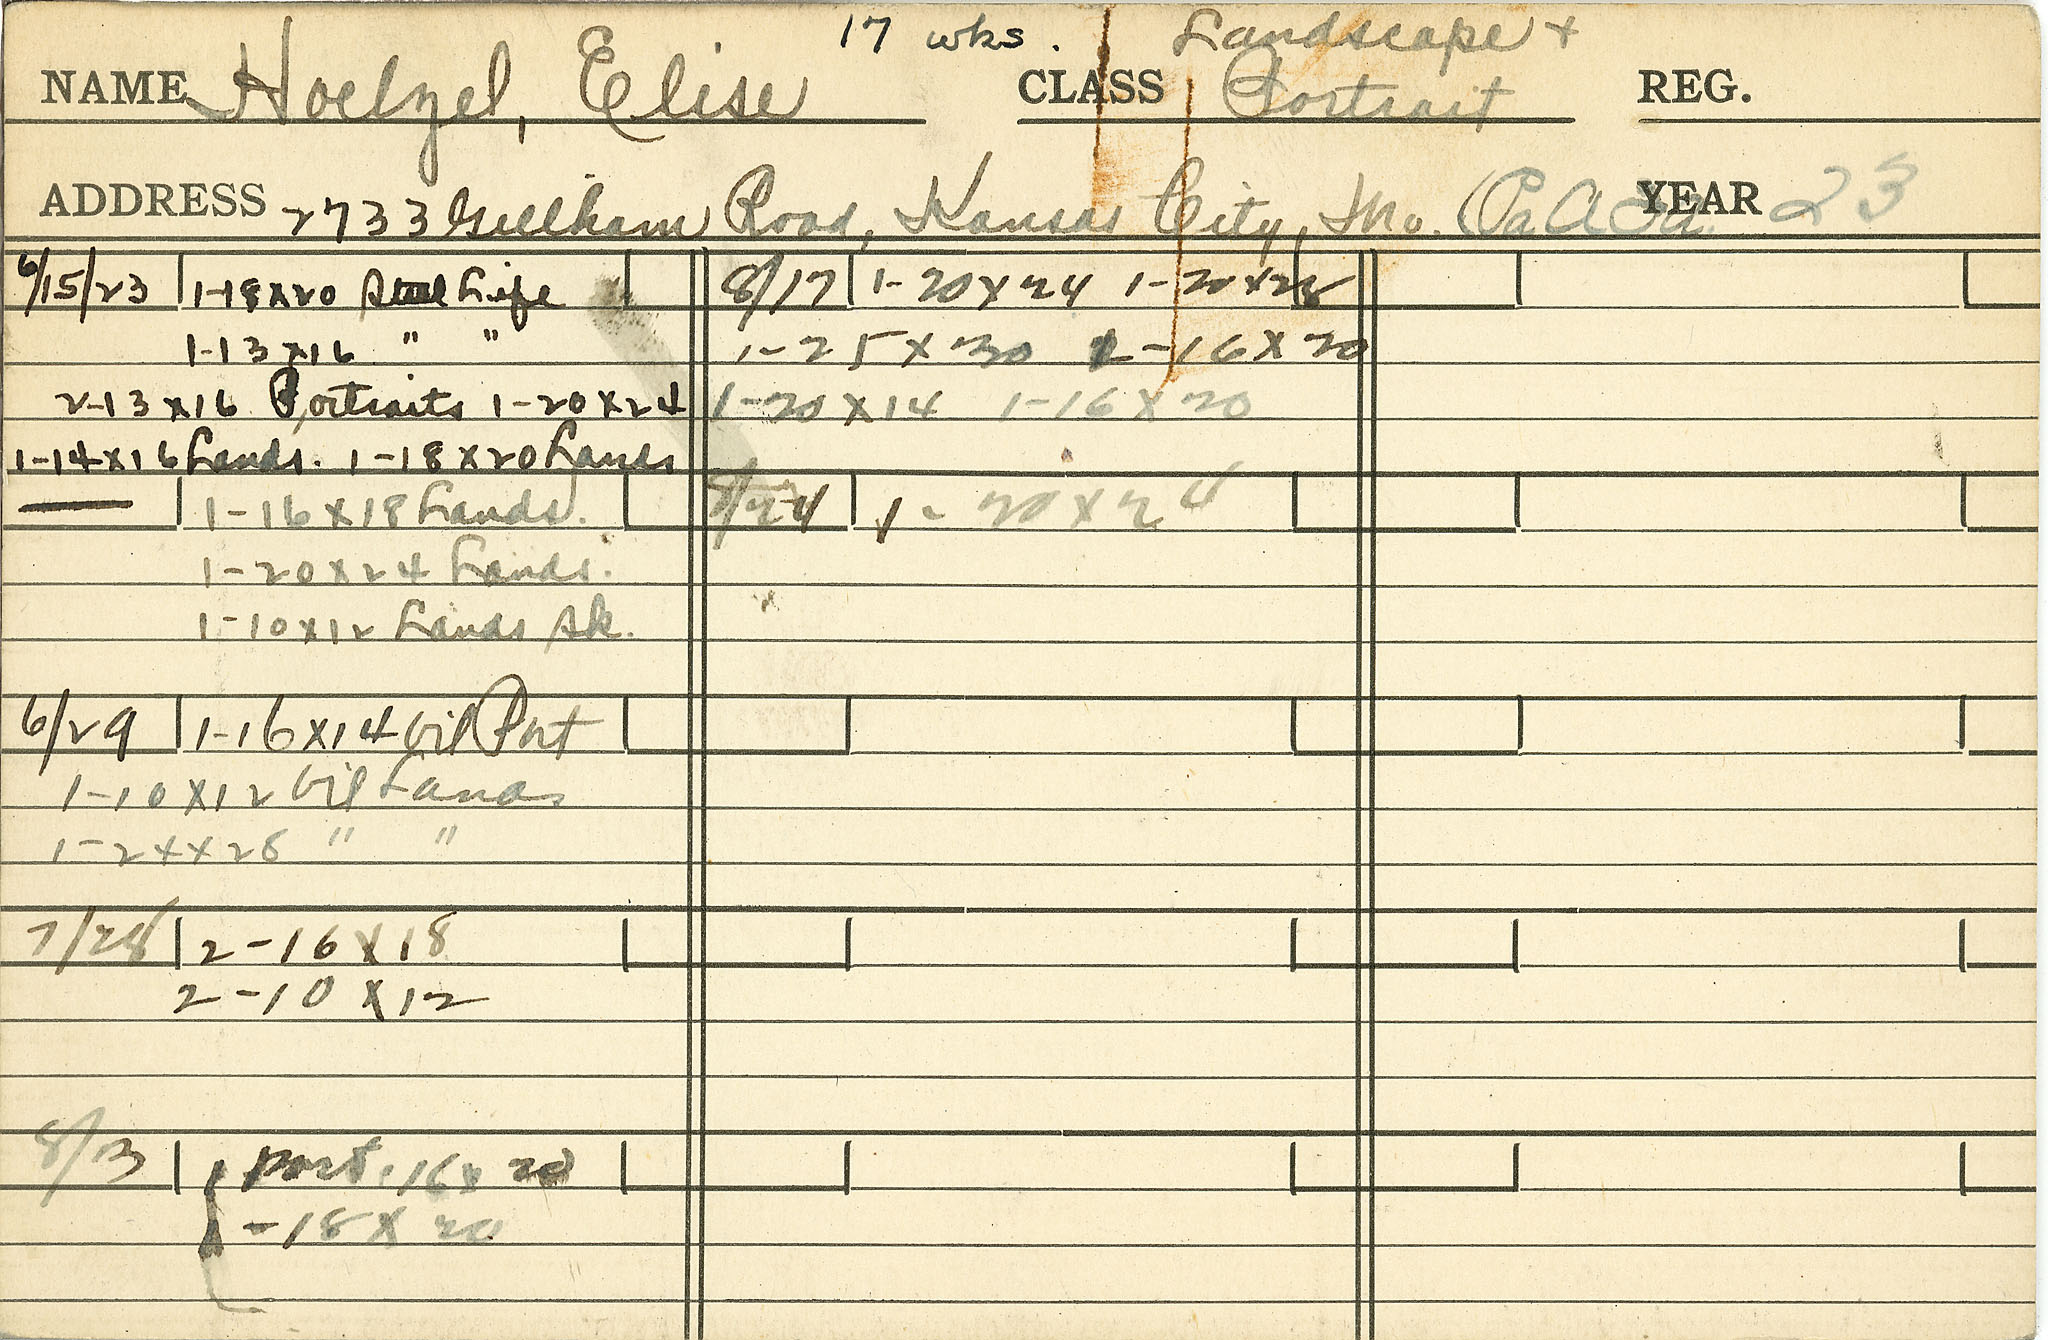 17 wks. Landscape +
NAME Hoelzel, Elise CLASS Portrait REG.
ADDRESS 2733 Gillham Road, Kansas City, Mo. YEAR 23
6/15/23 1-18x20 Still Life
1-13x16 " "
2-13x16 Portraits 1-20x24
1-14x16 Lands. 1-18x20 Lands
— 1-16x18 Lands.
1-20x24 Lands.
1-10x12 Lands Sk.
6/29 1-16x14 Oil Port
1-10x12 Oil Lands
1-24x28 " "
7/28 2-16x18
2-10x12
8/3 1 Port. 16x20
-18x20
8/17 1-20x24 1-20x28
1-25x30 2-16x20
1-20x14 1-16x20
8/24 1-20x24